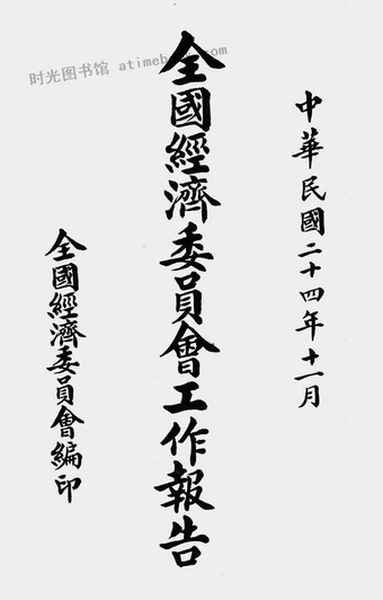 时光图书馆 atimebook.com
中華民國二十四年十一月
全國經濟委員會工作報告
全國經濟委員會編印